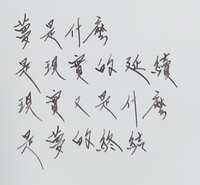 夢是什麼
是現實的延續
現實又是什麼
是夢的終結